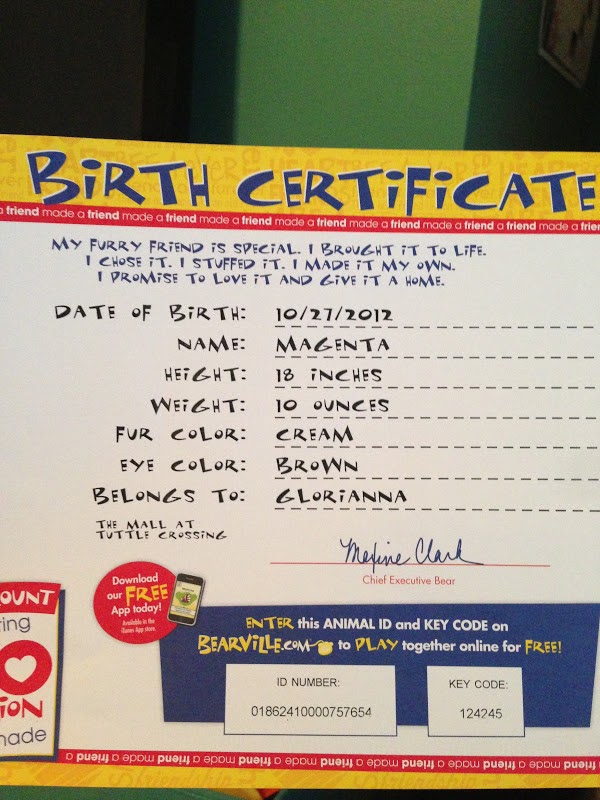 BIRTH CERTIFICATE
a friend made a friend made a friend made a friend made a friend made a friend made a friend made a friend
MY FURRY FRIEND IS SPECIAL. I BROUGHT IT TO LIFE.
I CHOSE IT. I STUFFED IT. I MADE IT MY OWN.
I PROMISE TO LOVE IT AND GIVE IT A HOME.
DATE OF BIRTH: 10/27/2012
NAME: MAGENTA
HEIGHT: 18 INCHES
WEIGHT: 10 OUNCES
FUR COLOR: CREAM
EYE COLOR: BROWN
BELONGS TO: GLORIANNA
THE MALL AT
TUTTLE CROSSING
Maxine Clark
Chief Executive Bear
Download
our FREE
App today!
Available in the
iTunes App store.
ENTER this ANIMAL ID and KEY CODE on
BEARVILLE.COM to PLAY together online for FREE!
ID NUMBER:
01862410000757654
KEY CODE:
124245
a friend made a friend made a friend made a friend made a friend made a friend made a friend